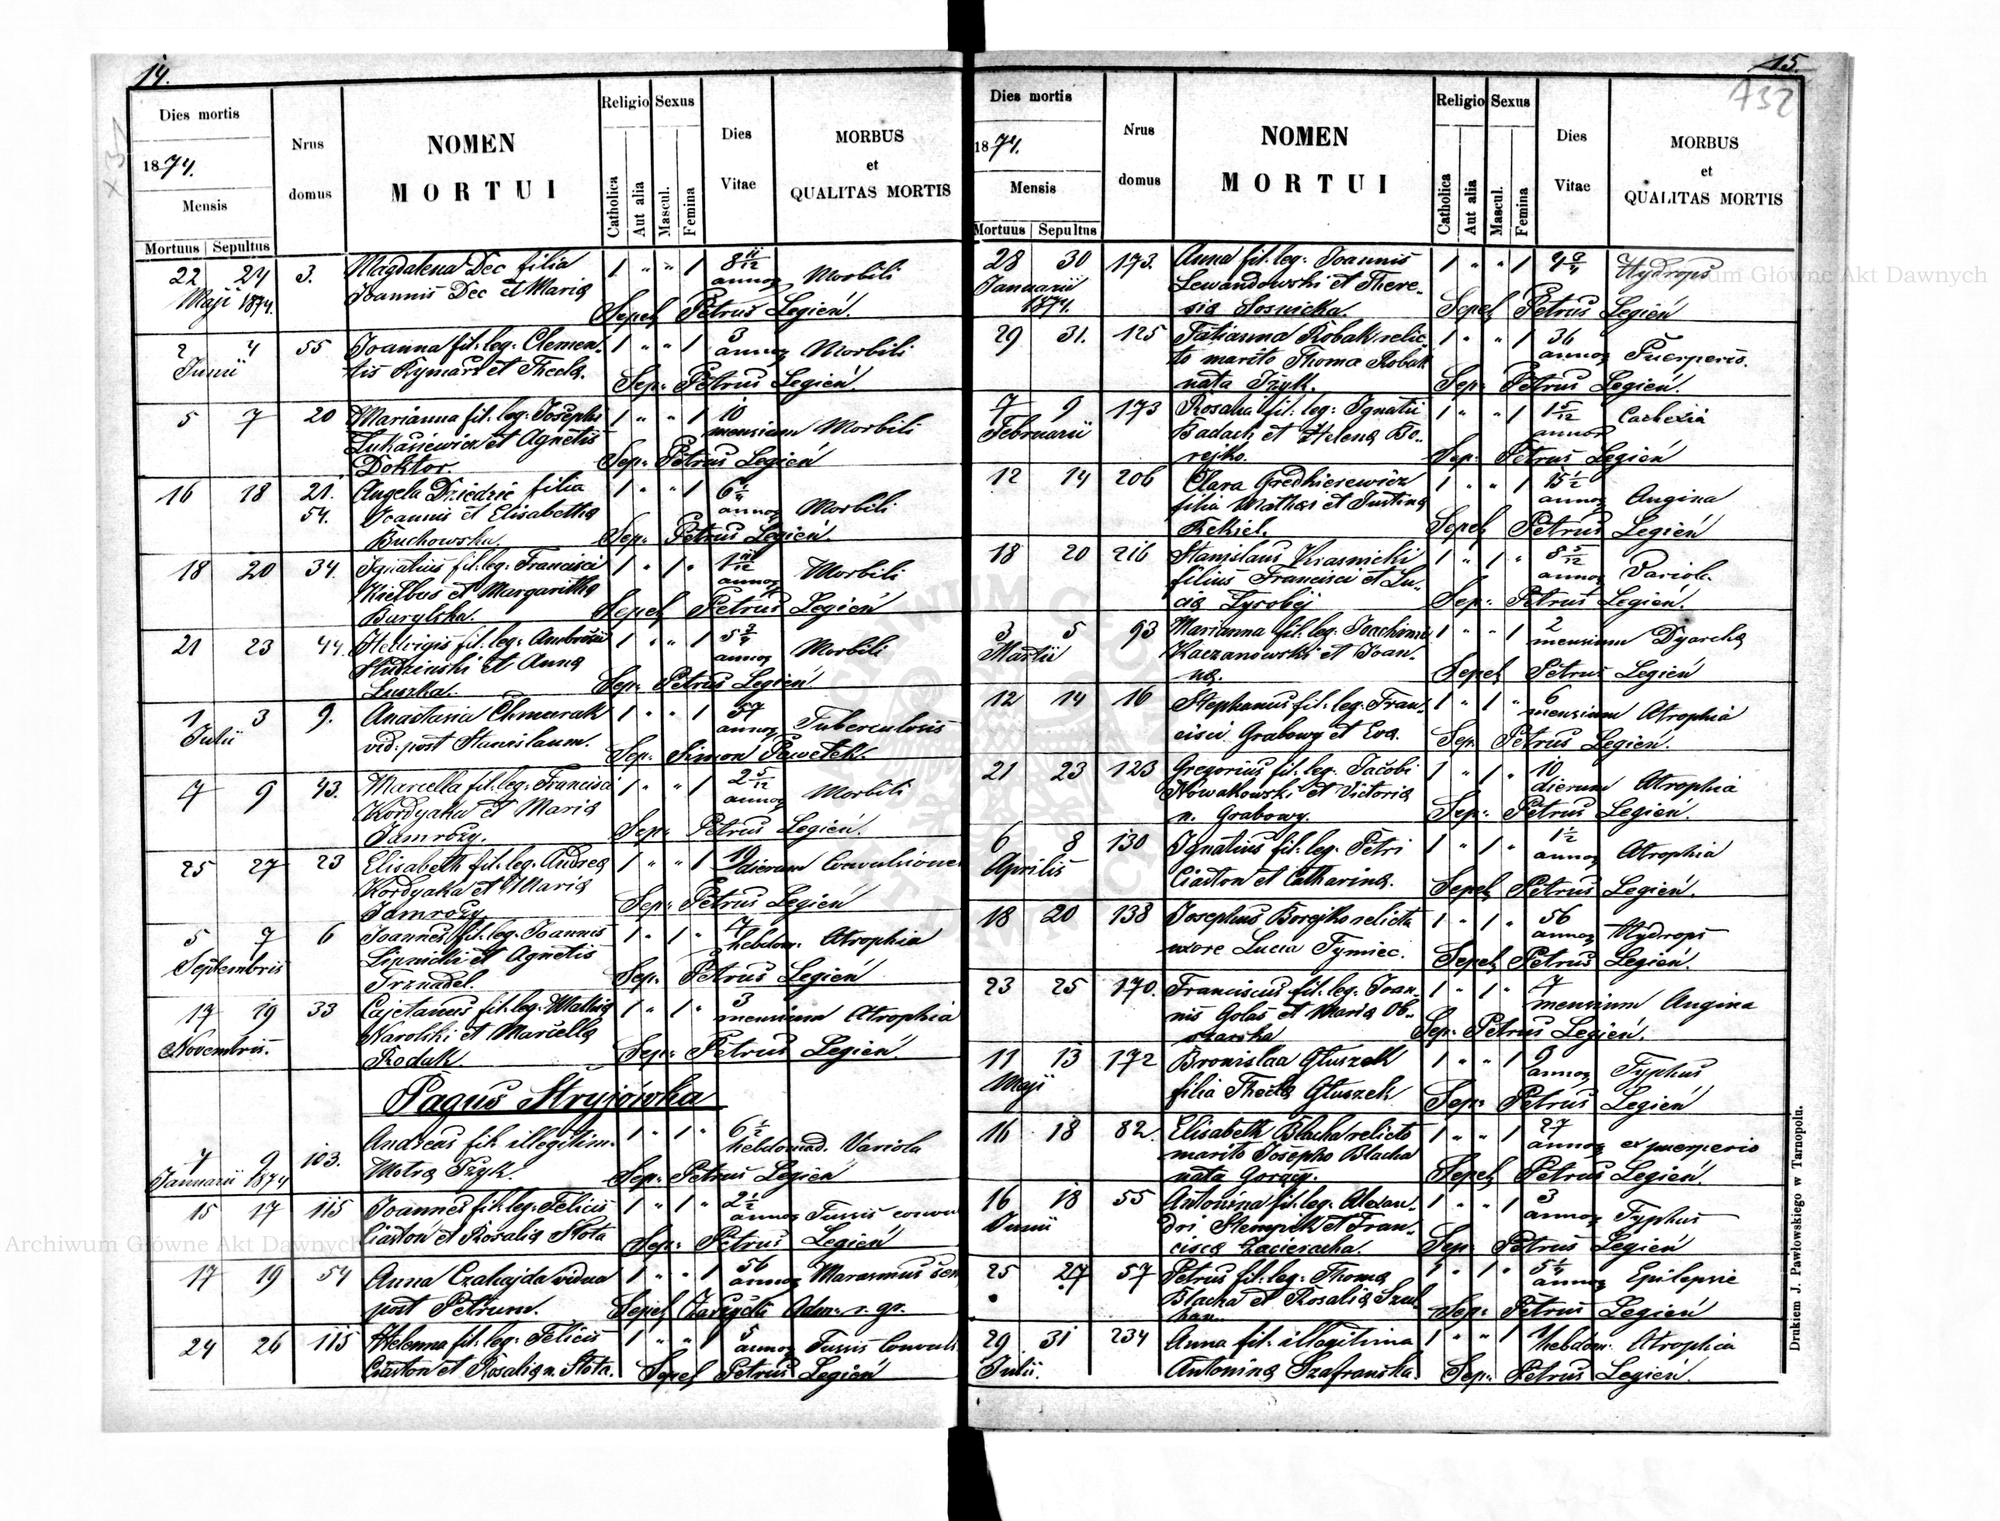 14.
Dies mortis
1874.
Mensis
Mortuus Sepultus
Nrus domus
NOMEN
MORTUI
Religio
Catholica
Aut alia
Sexus
Mascul.
Femina
Dies Vitae
MORBUS
et
QUALITAS MORTIS
22 24 3. Magdalena Dec filia 1 " " 1 8 11/12
Maji 1874. Joannis Dec et Maria annor Morbili
Sepel Petrus Legień
2 4 55 Joanna fil: leg: Clemen- 1 " " 1 3
Junii tis Rymarz et Thecla. annor Morbili
Sep: Petrus Legień
5 7 20 Marianna fil: leg: Josephi 1 " " 1 10
Łukasiewicz et Agnetis mensium Morbili
Doktor. Sep: Petrus Legień
16 18 21. Angela Dziedzic filia 1 " " 1 6 1/4
54. Joannis et Elisabetha annor Morbili
Buchowska. Sep: Petrus Legień.
18 20 34. Ignatius fil: leg: Francisci 1 " 1 "
Kiełbus et Margaritha annor Morbili
Burylska. Sepel Petrus Legień
21 23 44. Hedvigis fil: leg: Ambrosii 1 " " 1 5 3/4
Studzinski et Anna annor Morbili
Łuszka. Sep: Petrus Legień
1 3 9. Anastasia Chmurak 1 " " 1 57
Julii vid: post Stanislaum. annor Tuberculosis
Sep: Simon Pawełek.
7 9 43. Marcella fil: leg: Francisci 1 " " 1 2 5/12
Kordyaka et Maria annor Morbili
Jamroży. Sep: Petrus Legień.
25 27 23 Elisabeth fil: leg: Andrea 1 " " 1 10
Kordyaka et Maria dierum Convulsione
Jamroży. Sep: Petrus Legień
5 7 6 Joannes fil: leg: Joannis 1 " 1 " 7
Septembris Lipnicki et Agnetis hebdom: Atrophia
Trznadel. Sep: Petrus Legień
17 19 33 Cajetanus fil: leg: 1 " 1 " 3
Novembris. Narolski et Marcella mensium Atrophia
Roduk. Sep: Petrus Legień.
Pagus Stryjówka
7 9 103. Andreas fil: illegitim. 1 " 1 " 6 1/2
Januarii 1874 Motra Iżyk. hebdomad. Variola
Sep: Petrus Legień
15 17 115 Joannes fil: leg: Felicis 1 " 1 " 2 1/2
Ciastoń et Rosalia Słota annor Tussis convul
Sep: Petrus Legień
17 19 54 Anna Czahajda vidua 1 " " 1 56
post Petrum. annor Marasmus sen
Sepel Zarzycki Adm: r. gr.
24 26 115 Helenna fil: leg: Felicis 1 " " 1 5
Ciastoń et Rosalia n. Słota. annor Tussis Convul
Sepel Petrus Legień
15.
A32
Dies mortis
1874.
Mensis
Mortuus Sepultus
Nrus domus
NOMEN
MORTUI
Religio
Catholica
Aut alia
Sexus
Mascul.
Femina
Dies Vitae
MORBUS
et
QUALITAS MORTIS
28 30 173. Anna fil: leg: Joannis 1 " " 1
Januarii Lewandowski et There- Hydrops
1874. sia Sosnicka. Sepel Petrus Legień
29 31. 125 Tatianna Robak relic- 1 " " 1 36
to marito Thoma Robak annor Puerperis.
nata Iżyk. Sep: Petrus Legień.
7 9 173 Rosalia fil: leg: Ignatii 1 " " 1 1 5/12
Februarii Badach et Helena Bo- annor Cachexia
rejko. Sep: Petrus Legień
12 14 206 Clara Gredkiesewicz 1 " " 1
filia Mathei et Justina annor Angina
Rekiel. Sepel Petrus Legień
18 20 216 Stanislaus Krasnicki 1 " 1 " 8 5/12
filius Francisci et Lu- annor Variola.
cia Lyrobój Sep: Petrus Legień.
3 5 93 Marianna fil: leg: Joachimi 1 " " 1 2
Martii Kaczanowski et Joan- mensium Dyarcha
na. Sepel Petrus Legień
12 14 16 Stephanus fil: leg: Fran- 1 " 1 " 6
cisci Grabowy et Eva. mensium Atrophia
Sep. Petrus Legień.
21 23 123 Gregorius fil: leg: Jacobi 1 " 1 " 10
Nowakowski et Victoria dierum Atrophia
n. Grabowy. Sep: Petrus Legień.
6 8 130 Ignatius fil: leg: Petri 1 " 1 " 1 1/2
Aprilis Ciastoń et Catharina. annor Atrophia
Sepel Petrus Legień.
18 20 138 Josephus Borejko relicta 1 " 1 " 56
uxore Lucia Tymiec. annor Hydrops
Sepel Petrus Legień.
23 25 170. Franciscus fil: leg: Joan- 1 " 1 " 7
nis Golas et Maria Ob- mensium Angina
szarska Sep: Petrus Legień.
11 13 172 Bronislaa Głuszek 1 " " 1 9
Maji filia Thecla Głuszek annor Typhus
Sep: Petrus Legień
16 18 82. Elisabeth Blacha relicto 1 " " 1 27
marito Josepho Blacha annor ex puerperio
nata Sepel Petrus Legień.
16 18 55 Antonina fil: leg: Alexan- 1 " " 1 3
Junii dri Stempik et Fran- annor Typhus
cisca Zacieracha. Sep: Petrus Legień
25 27 57 Petrus fil: leg: Thoma 1 " 1 " 5 1/4
Blacha et Rosalia annor Epilepsie
Sep: Petrus Legień
29 31 234 Anna fil: illegitima 1 " " 1
Julii. Antonina Szafrańska hebdom: Atrophia
Sep: Petrus Legień.
Drukiem J. Pawłowskiego w Tarnopolu.
Archiwum Główne Akt Dawnych
Archiwum Główne Akt Dawnych